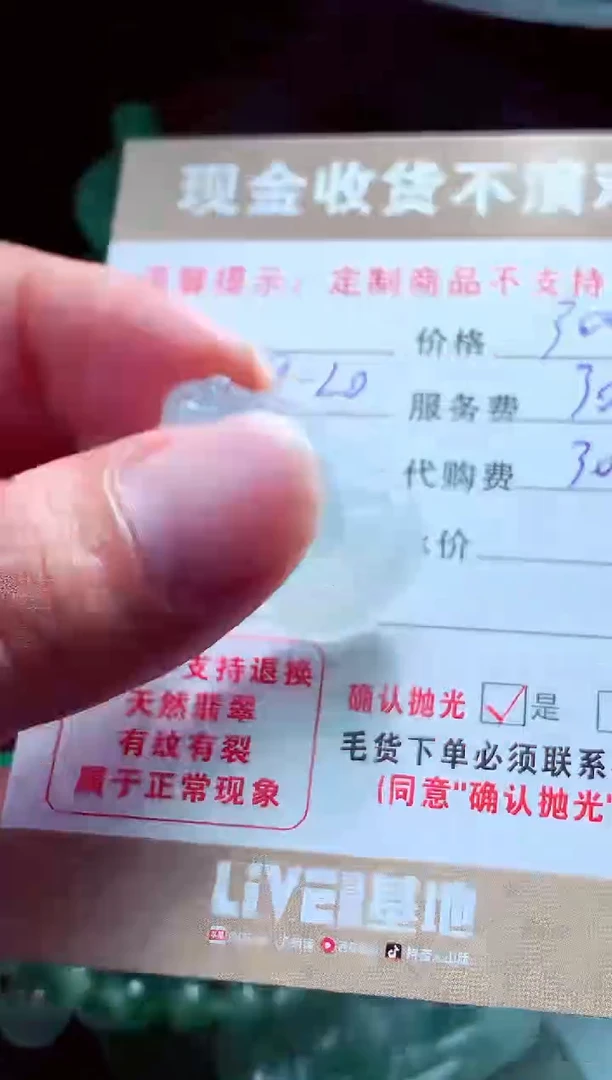 现金收货不演
温馨提示：定制商品不支持
价格 300
-20
服务费 30
代购费 30
价
支持退换
天然翡翠
有纹有裂
属于正常现象
确认抛光 ✓ 是
毛货下单必须联系
(同意"确认抛光"
LiVE 基地